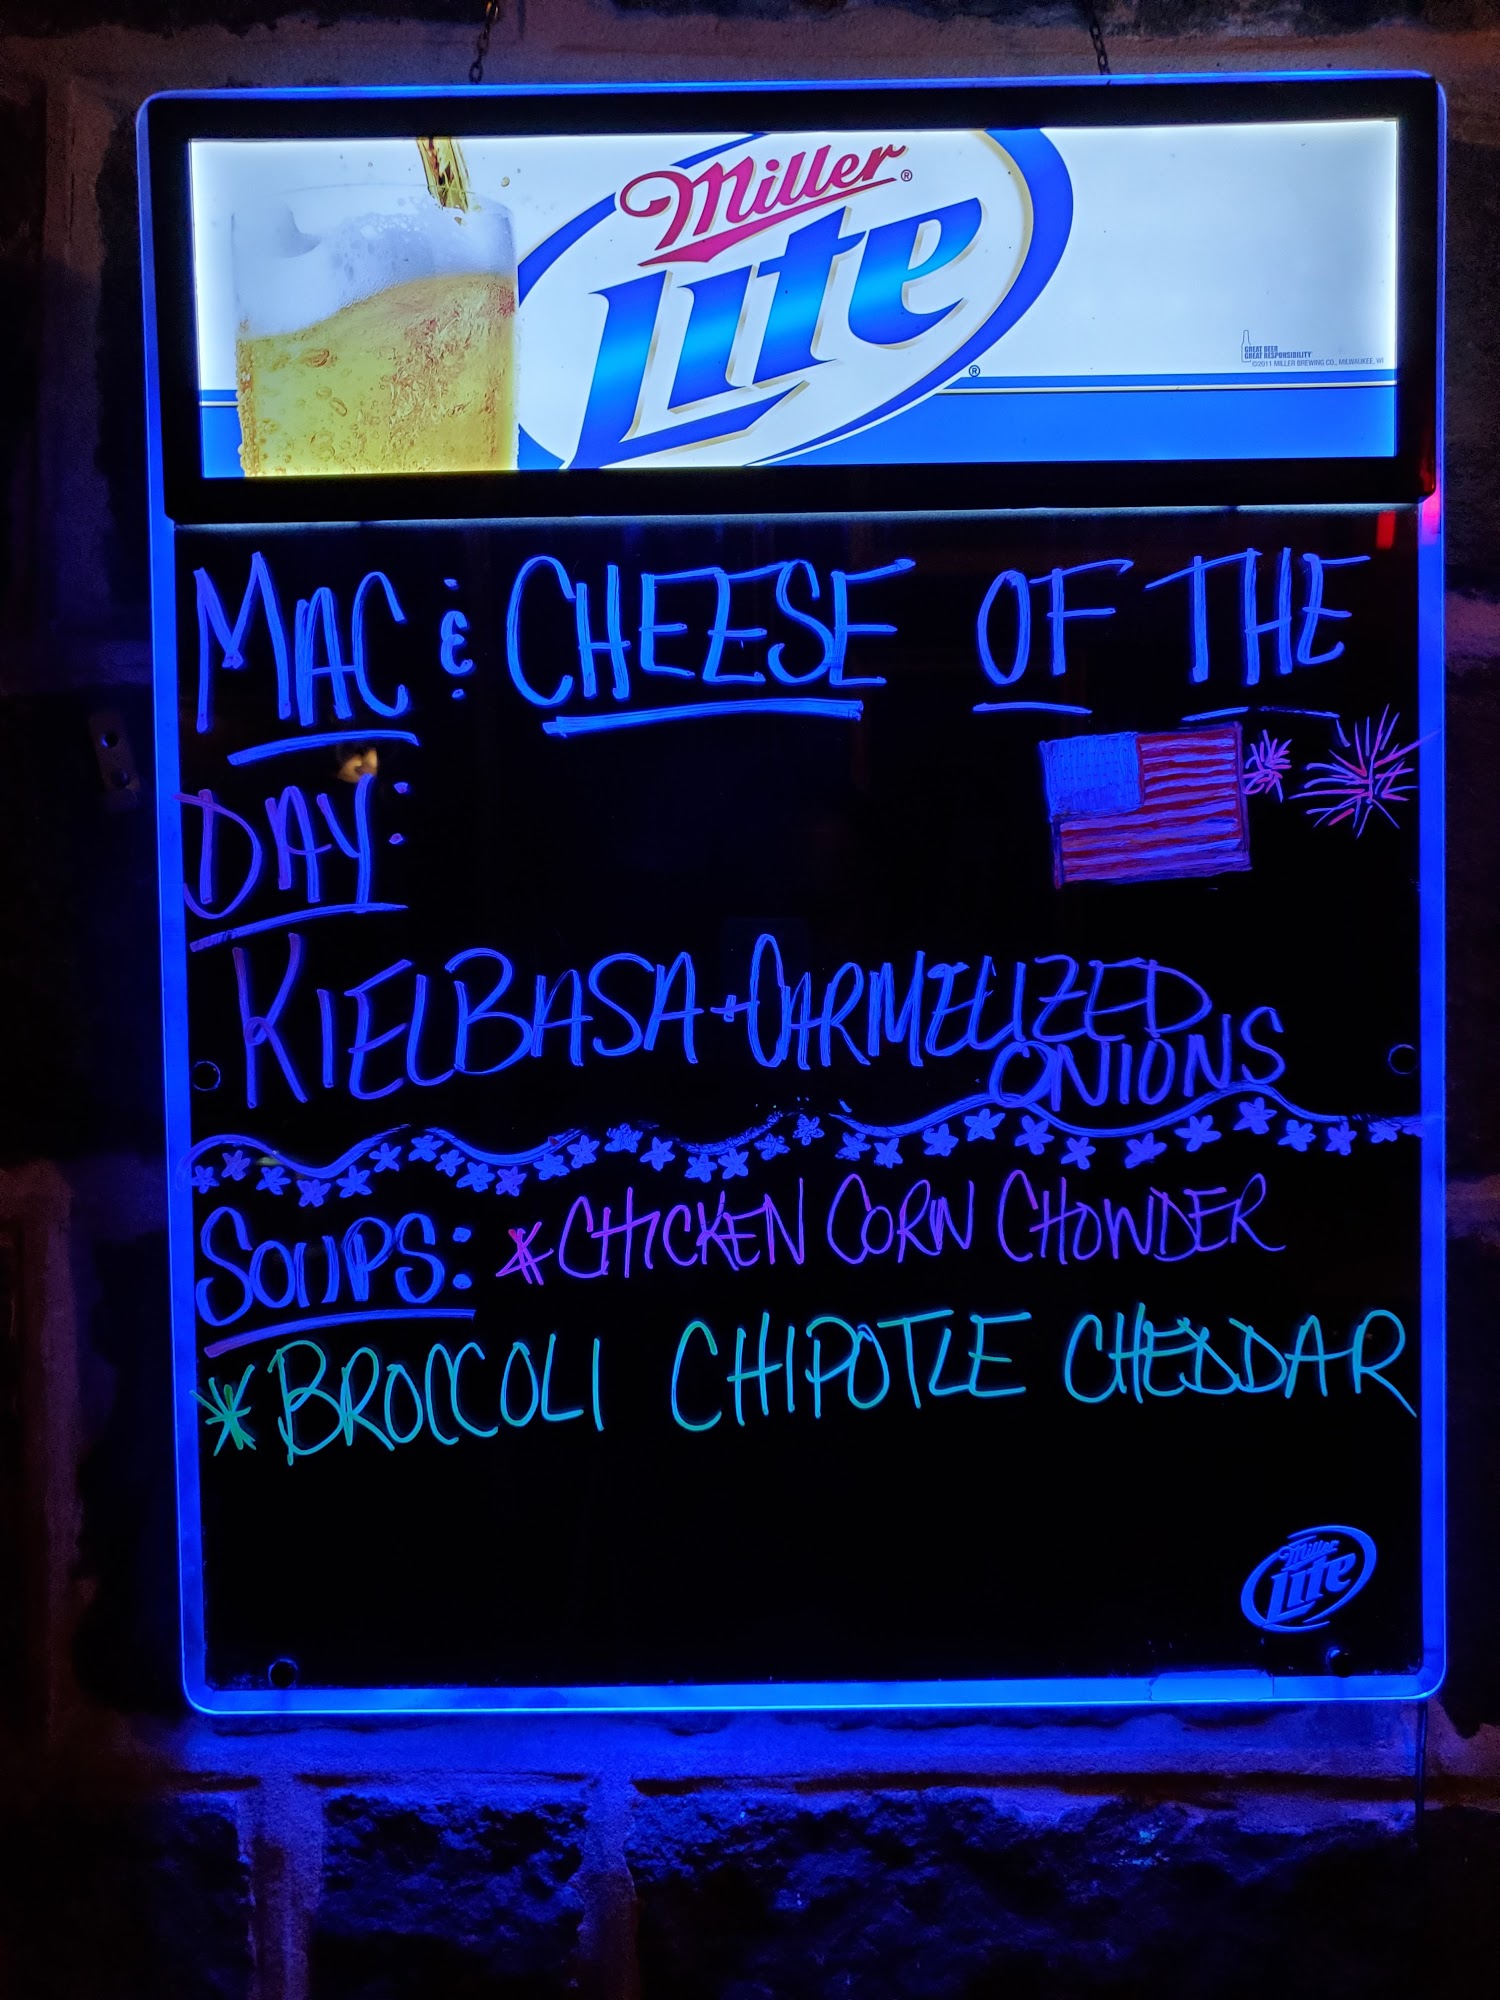 Miller®
Lite®
GREAT BEER
GREAT RESPONSIBILITY
©2011 MILLER BREWING CO., MILWAUKEE, WI
MAC & CHEESE OF THE
DAY:
KIELBASA + CARMELIZED
ONIONS
SOUPS: *CHICKEN CORN CHOWDER
*BROCCOLI CHIPOTLE CHEDDAR
Miller
Lite